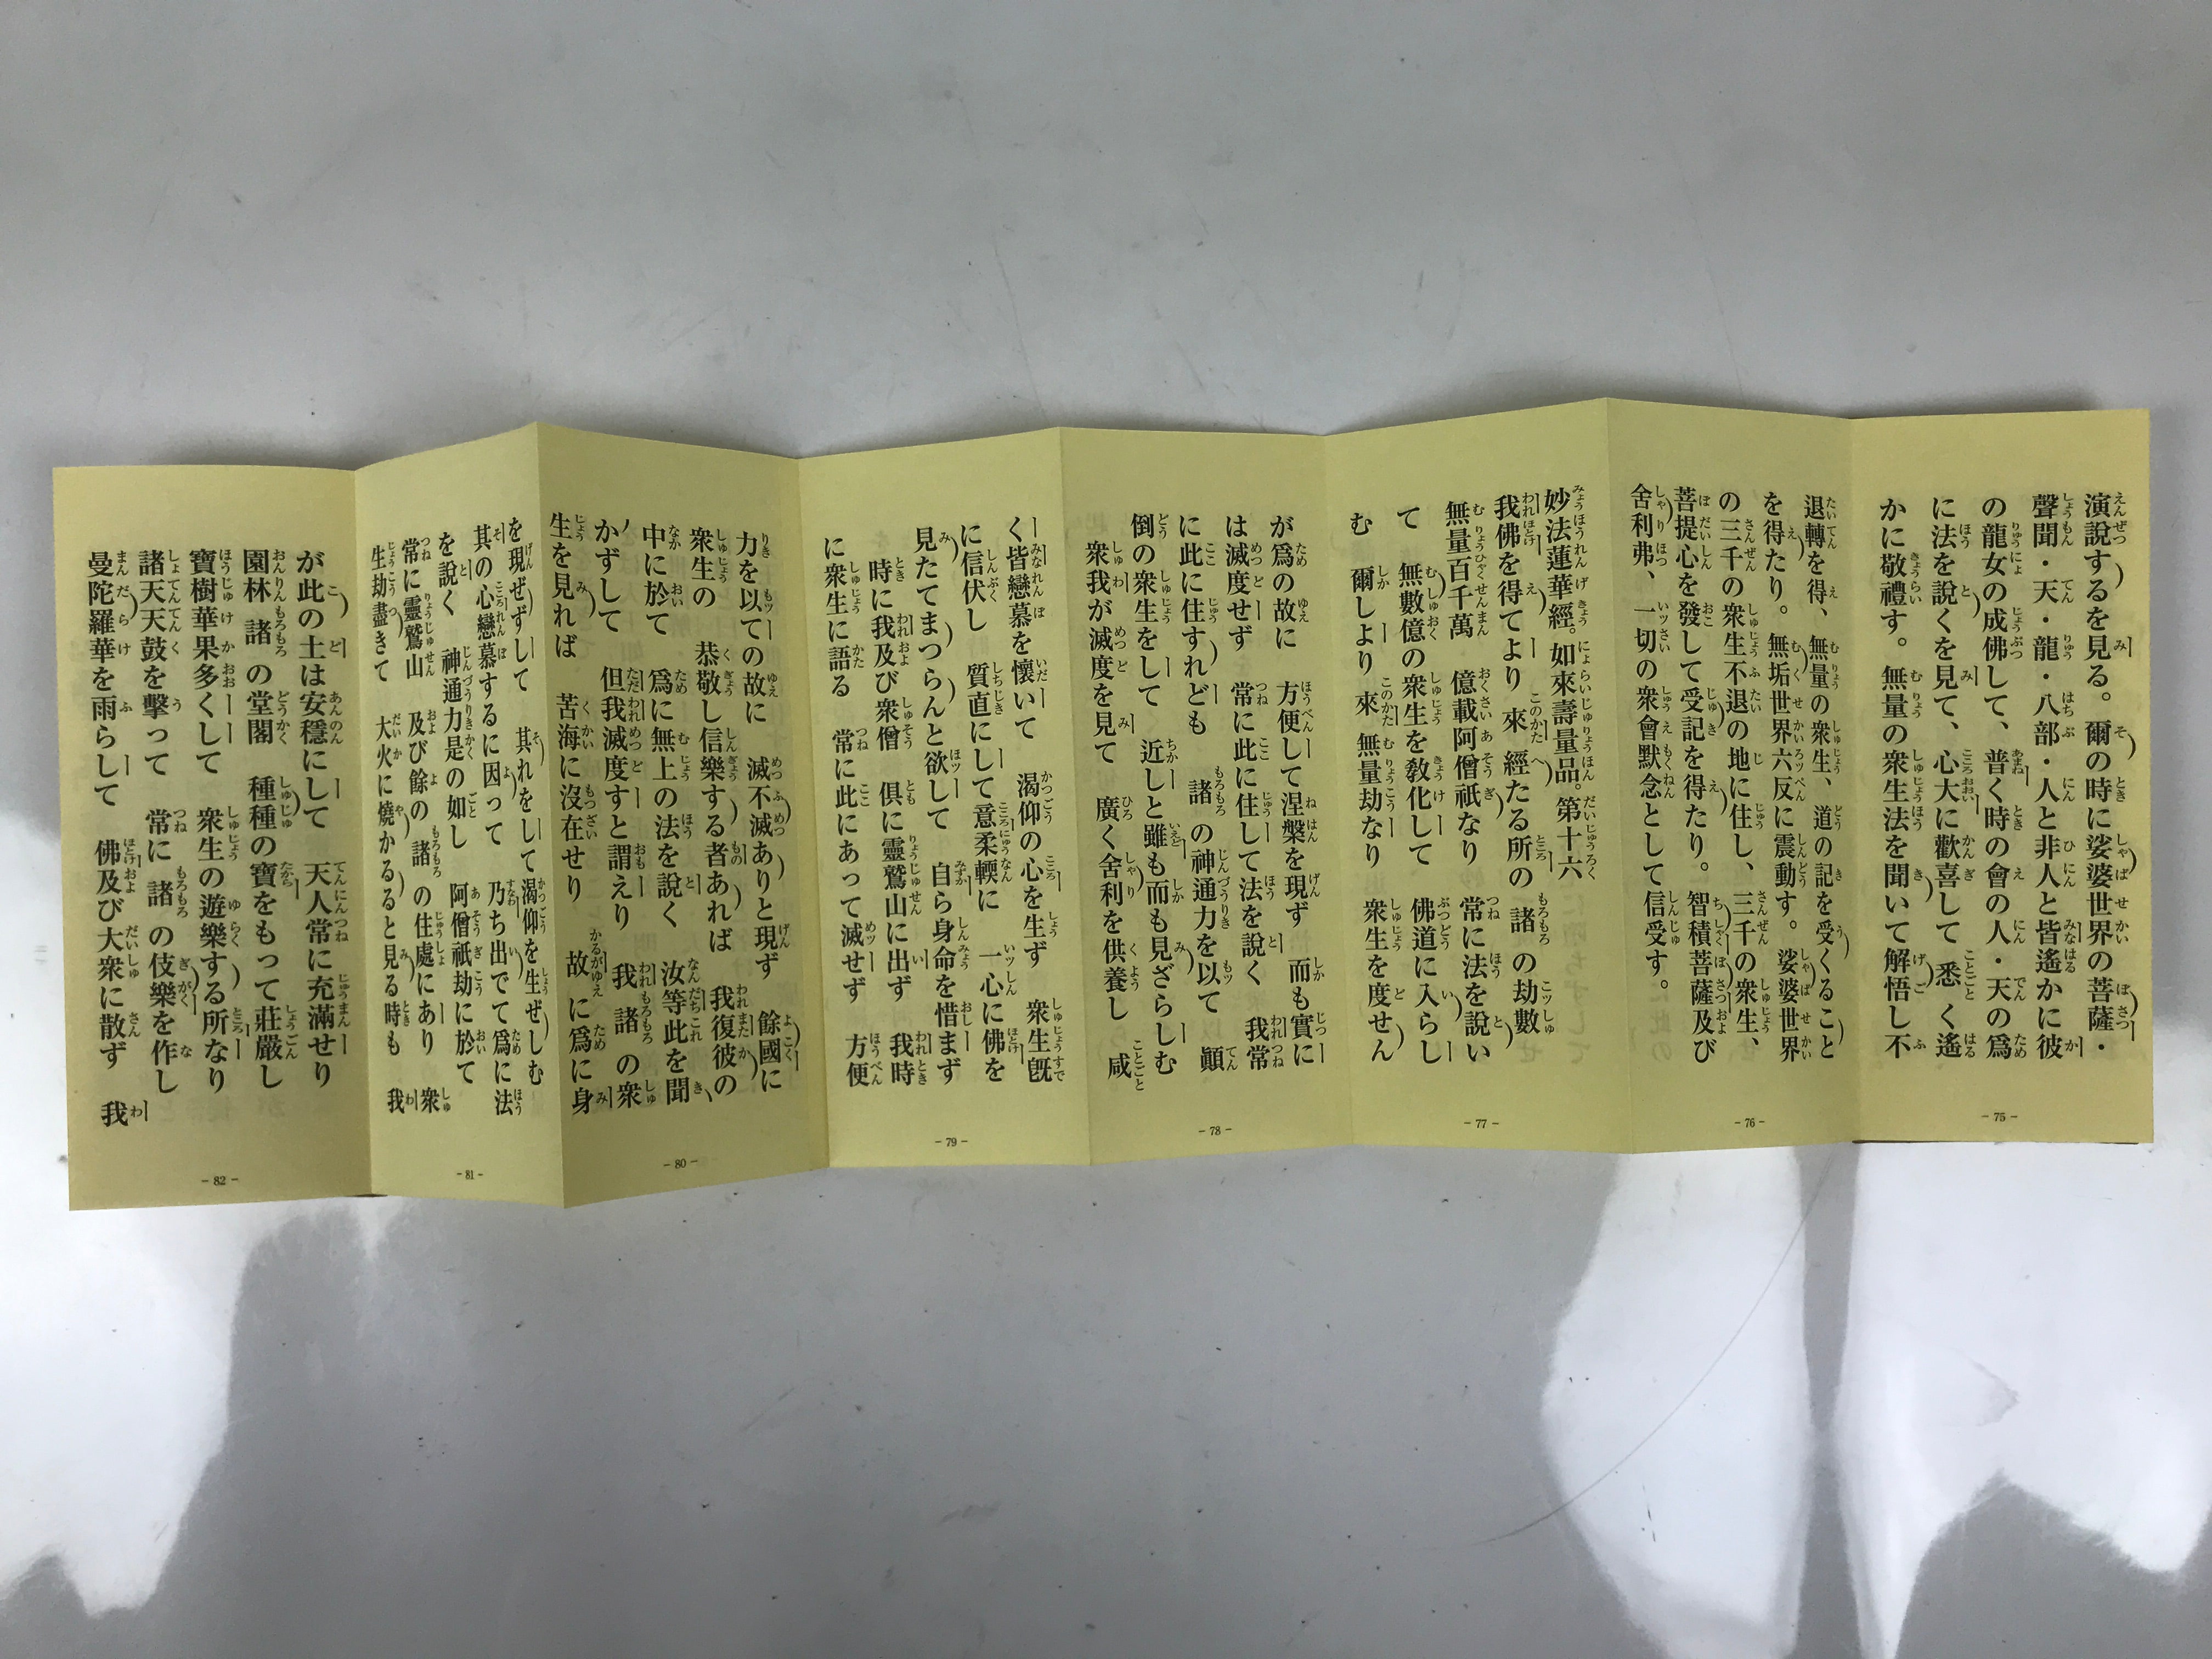 演說するを見る。爾の時に娑婆世界の菩薩・
聲聞・天・龍・八部・人と非人と皆遙かに彼
の龍女の成佛して、普く時の會の人・天の爲
に法を說くを見て、心大に歡喜して悉く遙
かに敬禮す。無量の衆生法を聞いて解悟し不
- 75 -
退轉を得、無量の衆生、道の記を受くること
を得たり。無垢世界六反に震動す。娑婆世界
の三千の衆生不退の地に住し、三千の衆生、
菩提心を發して受記を得たり。智積菩薩及び
舍利弗、一切の衆會默念として信受す。
- 76 -
妙法蓮華經。如來壽量品。第十六
我佛を得てより 來 經たる所の 諸の劫數
無量百千萬 億載阿僧祇なり 常に法を說い
て 無數億の衆生を敎化して 佛道に入らし
む 爾しより來 無量劫なり 衆生を度せん
- 77 -
が爲の故に 方便して涅槃を現ず 而も實に
は滅度せず 常に此に住して法を說く 我常
に此に住すれども 諸の神通力を以て 顚
倒の衆生をして 近しと雖も而も見ざらしむ
衆我が滅度を見て 廣く舍利を供養し 咸
- 78 -
く皆戀慕を懷いて 渴仰の心を生ず 衆生旣
に信伏し 質直にして意柔輭に 一心に佛を
見たてまつらんと欲して 自ら身命を惜まず
時に我及び衆僧 俱に靈鷲山に出ず 我時
に衆生に語る 常に此にあって滅せず 方便
- 79 -
力を以ての故に 滅不滅ありと現ず 餘國に
衆生の 恭敬し信樂する者あれば 我復彼の
中に於て 爲に無上の法を說く 汝等此を聞
かずして 但我滅度すと謂えり 我諸の衆
生を見れば 苦海に沒在せり 故に爲に身
- 80 -
を現ぜずして 其れをして渴仰を生ぜしむ
其の心戀慕するに因って 乃ち出でて爲に法
を說く 神通力是の如し 阿僧祇劫に於て
常に靈鷲山 及び餘の諸の住處にあり 衆
生劫盡きて 大火に燒かるると見る時も 我
- 81 -
が此の土は安穩にして 天人常に充滿せり
園林諸の堂閣 種種の寶をもって莊嚴し
寶樹華果多くして 衆生の遊樂する所なり
諸天天鼓を擊って 常に諸の伎樂を作し
曼陀羅華を雨らして 佛及び大衆に散ず 我
- 82 -